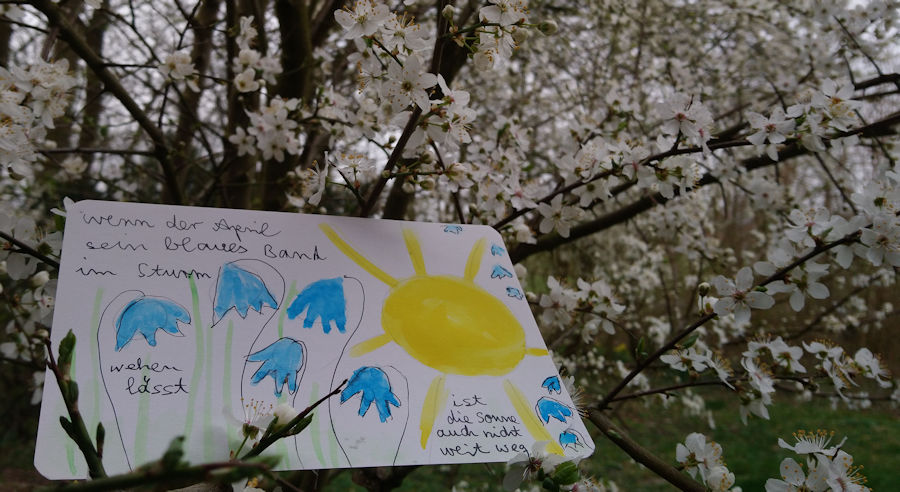 wenn der April
sein blaues Band
im Sturm
wehen
lässt
ist
die Sonne
auch nicht
weit weg